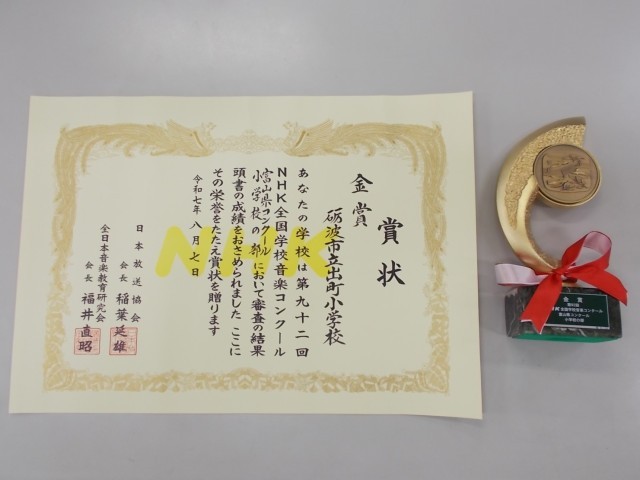 賞状
金賞
砺波市立出町小学校
あなたの学校は第九十二回
NHK全国学校音楽コンクール
富山県コンクール
小学校の部において審査の結果
頭書の成績をおさめられました ここに
その栄誉をたたえ賞状を贈ります
令和七年八月七日
日本放送協会
会長 稲葉延雄
全日本音楽教育研究会
会長 福井直昭
NHK
金賞
第92回
NHK全国学校音楽コンクール
富山県コンクール
小学校の部